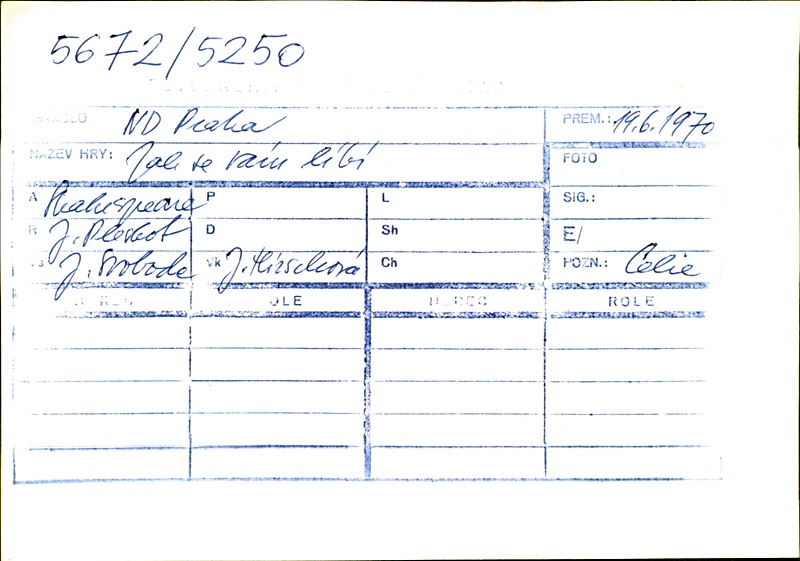 5672/5250
DIVADLO ND Praha PREM.: 19.6.1970
NÁZEV HRY: Jak se vám líbí FOTO
A Shakespeare P L SIG.:
R J. Pleskot D Sh E/
Vs J. Svoboda Vk J. Hirschová Ch POZN.: Celie
HEREC ROLE HEREC ROLE